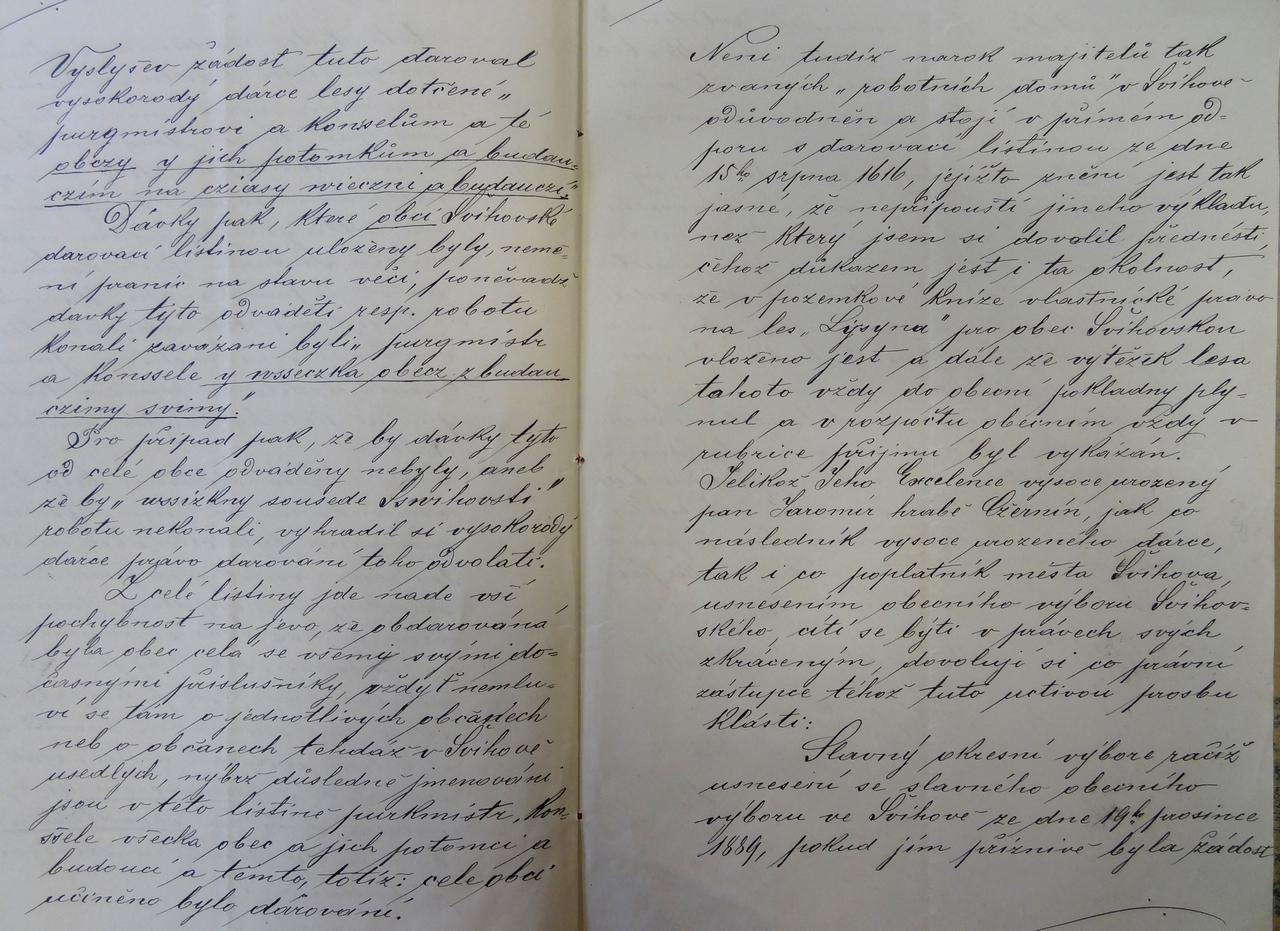 Vyslyšev žádost tuto daroval
vysokorodý dárce lesy dotčené „
purgmistrovi a konšelům a té
obczy y jich potomkům a budau-
czím na cziasy wieczni a budauczí"
Dávky pak, které obci Švihovské
darovací listinou uloženy byly, nemě-
ní pranic na stavu věci, poněvadž
dávky tyto odváděti resp. robotu
konati zavázáni byli „purgmistr
a konssele y wsseczka obecz z budau
czimy svimy."
Pro případ pak, že by dávky tyto
od celé obce odváděny nebyly, aneb
že by „wssizkny sousede Sswihovsti"
robotu nekonali, vyhradil si vysokorodý
dárce právo darování toho odvolati.
Z celé listiny jde nade vší
pochybnost na jevo, že obdarována
byla obec celá se všemi svými do-
časnými příslušníky, vždyť nemlu-
ví se tam o jednotlivých občanech
neb o občanech tehdáž v Švihově
usedlých, nýbrž důsledně jmenováni
jsou v této listině purkmistr, kon-
šelé všecka obec a jich potomci a
budoucí a těmto, totiž: celé obci
učiněno bylo darování.
Není tudíž narok majitelů tak
zvaných „robotních domů" v Švihově
odůvodněn a stojí v přímém od-
poru s darovací listinou ze dne
15ho srpna 1616, jejížto znění jest tak
jasné, že nepřipouští jiného výkladu,
než který jsem si dovolil přednésti,
čehož důkazem jest i ta okolnost,
že v pozemkové knize vlastnické právo
na les „Lýsyna" pro obec Švihovskou
vloženo jest a dále že výtěžek lesa
tohoto vždy do obecní pokladny ply-
nul a v rozpočtu obecním vždy v
rubrice příjmu byl vykázán.
Jelikož Jeho Excelence vysoce urozený
pan Jaromír hrabě Czernín, jak co
následník vysoce urozeného dárce,
tak i co poplatník města Švihova,
usnesením obecního výboru Švihov-
ského, cítí se býti v právech svých
zkráceným, dovoluji si co právní
zástupce téhož tuto uctivou prosbu
klásti:
Slavný okresní výbore račiž
usnesení se slavného obecního
výboru ve Švihově ze dne 19ho prosince
1889, pokud jím příznivě byla žádost